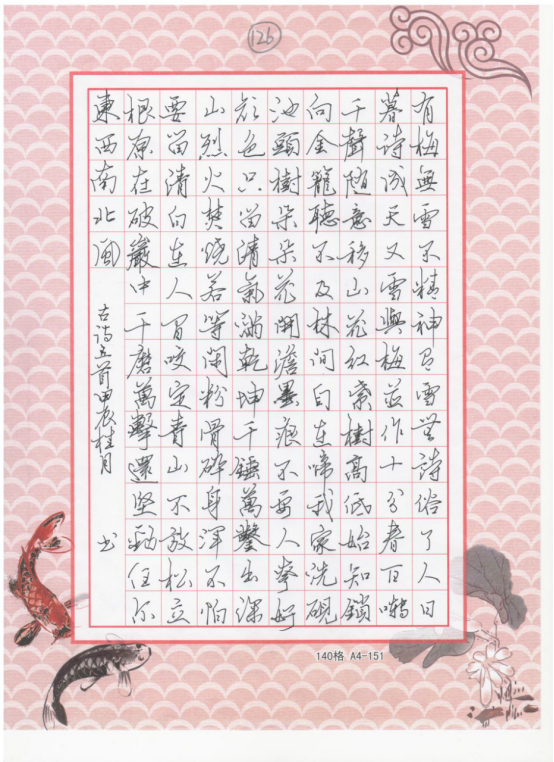 126
有梅無雪不精神有雪无詩俗了人日
暮詩成天又雪與梅並作十分春百囀
千聲随意移山花紅紫樹高低始知鎖
向金籠聽不及林间自在啼我家洗硯
池頭樹朵朵花開澹墨痕不要人夸好
颜色只留清氣滿乾坤千錘萬鑿出深
山烈火焚燒若等闲粉骨碎身渾不怕
要留清白在人间咬定青山不放松立
根原在破巖中千磨萬擊還坚劲任尔
東西南北風
古诗五首甲辰桂月 书
140格 A4-151